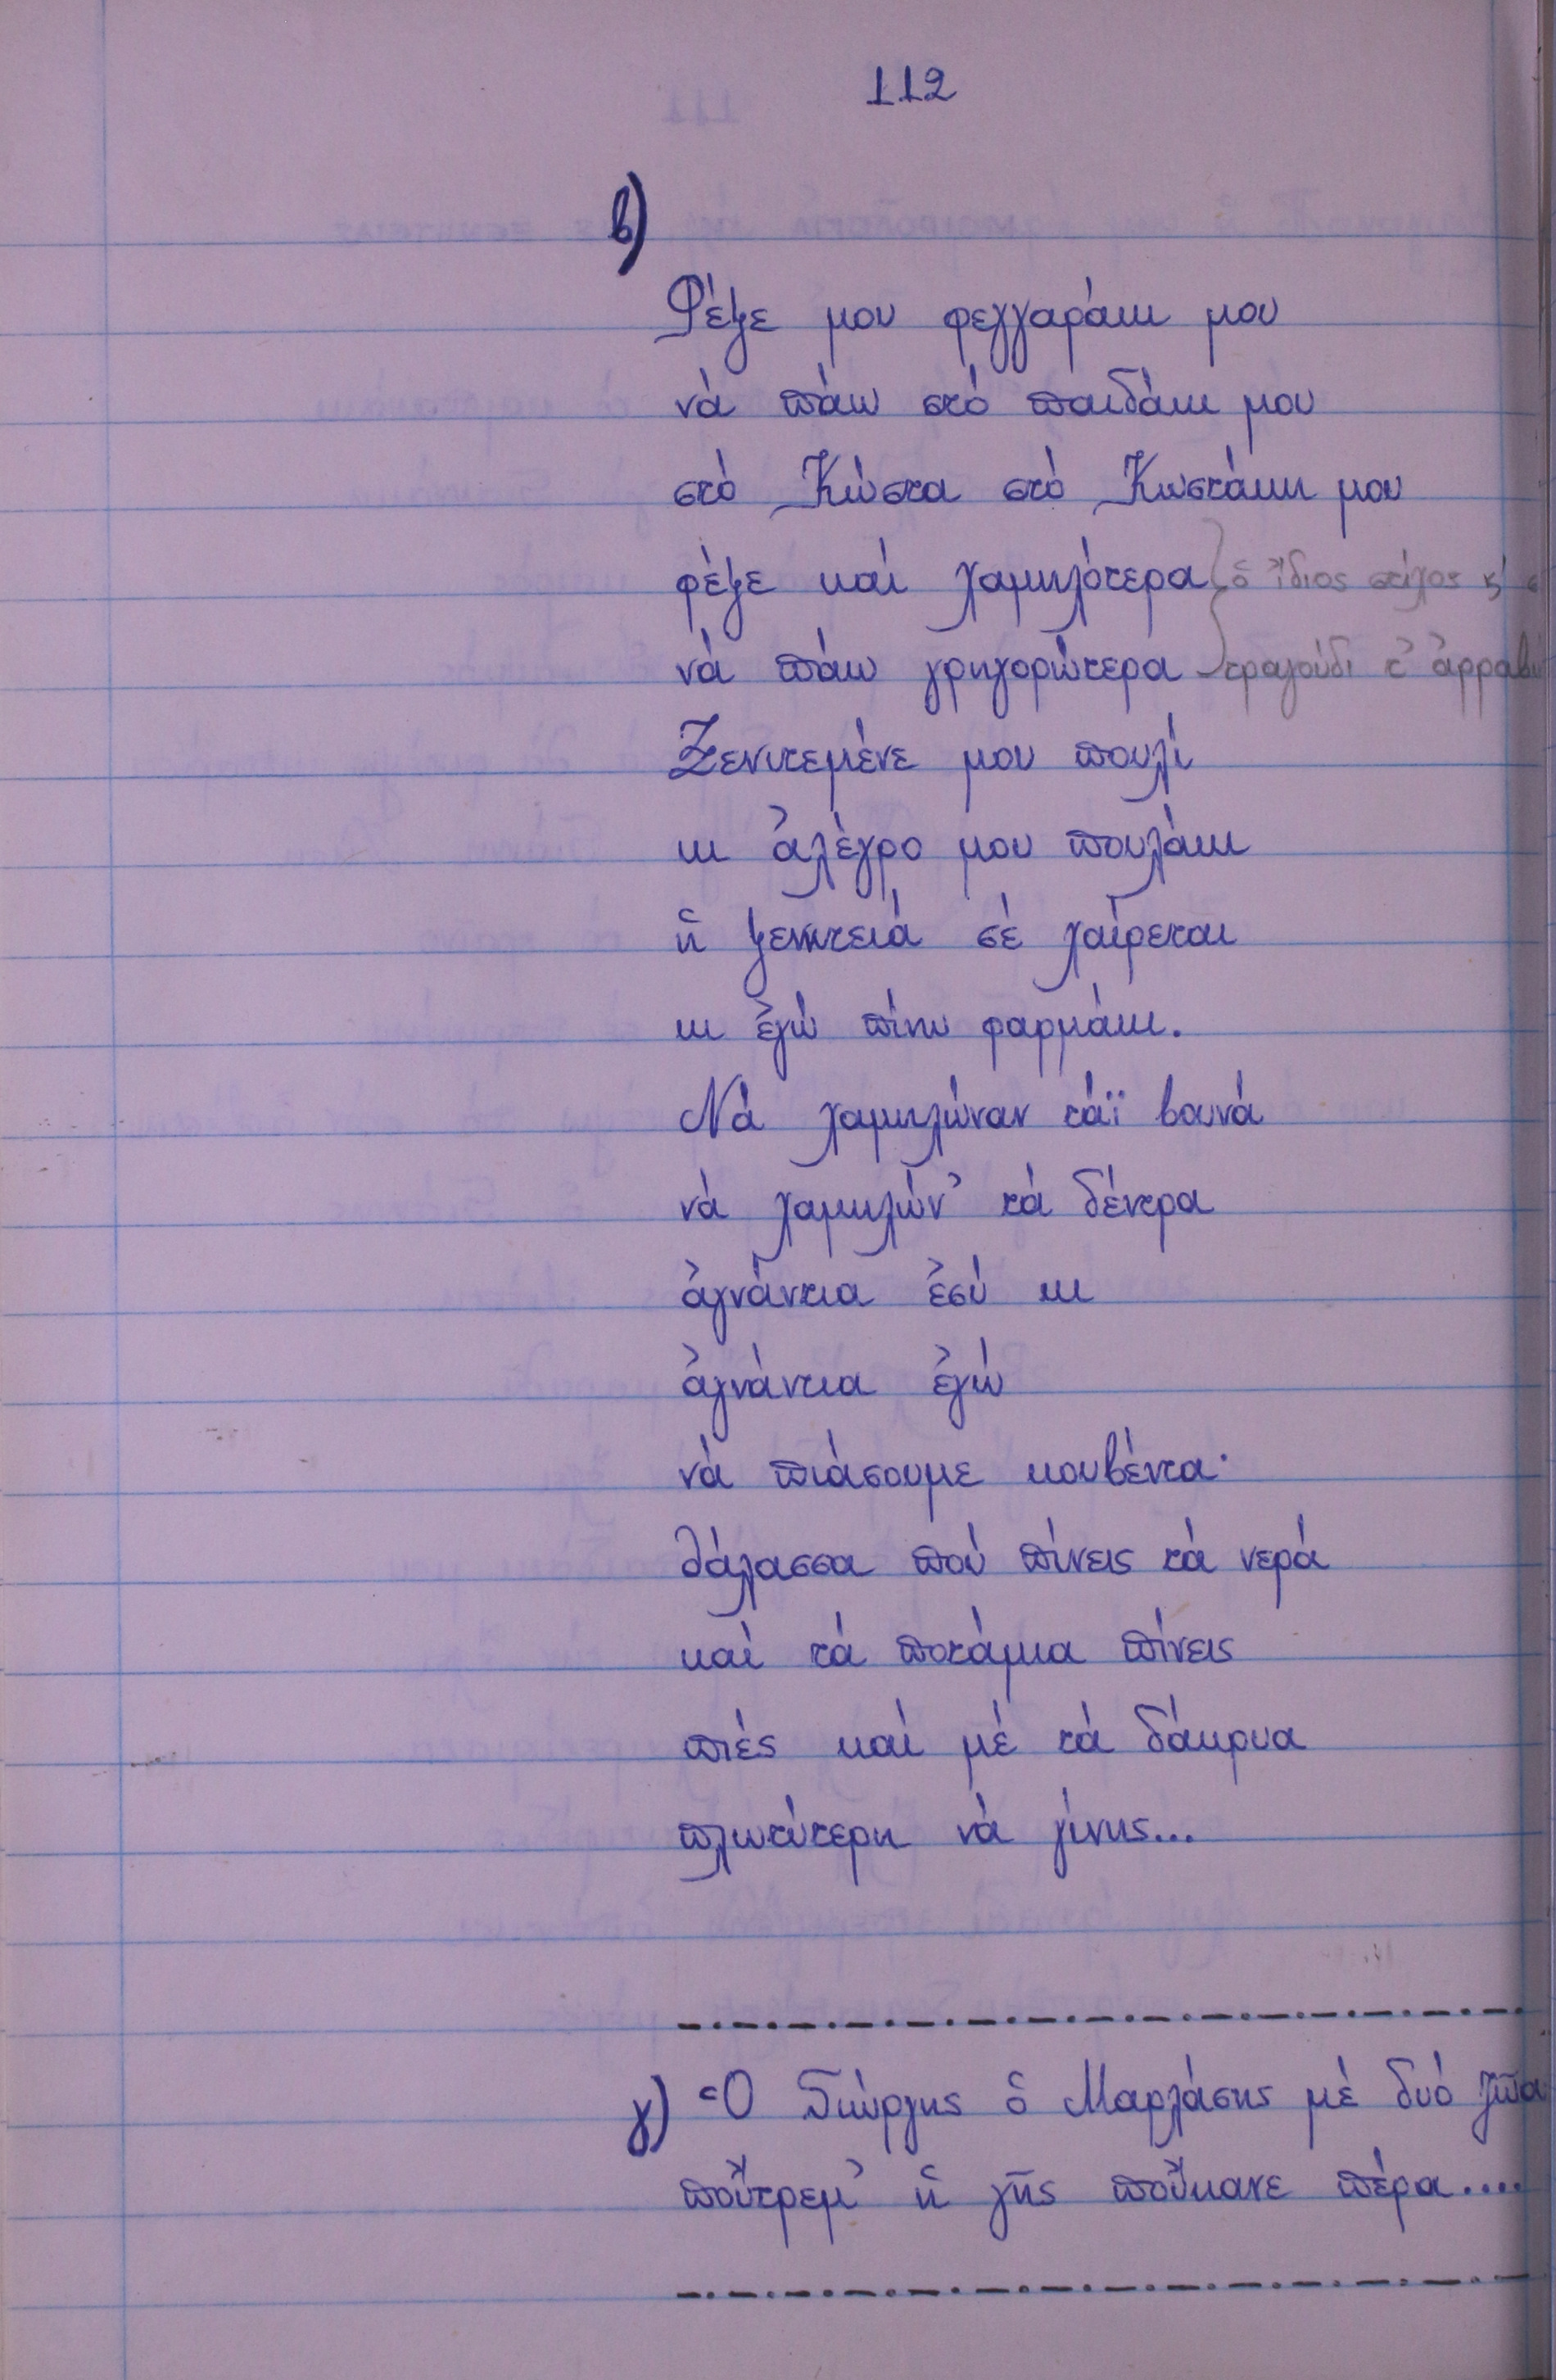 112
β)
Φέξε μου φεγγαράκι μου
νά πάω στό παιδάκι μου
στό Κώστα στό Κωστάκη μου
φέξε καί χαμηλότερα
ὁ ἴδιος στίχος κ'
νά πάω γρηγορώτερα
τραγούδι τ' ἀρραβ
Ξενιτεμένε μου πουλί
κι ἀλέγρο μου πουλάκι
ἡ ξενιτειά σέ χαίρεται
κι ἐγώ πίνω φαρμάκι.
Νά χαμηλώναν τάϊ βουνά
νά χαμηλών' τά δέντρα
ἀγνάντια ἐσύ κι
ἀγνάντια ἐγώ
νά πιάσουμε κουβέντα·
θάλασσα πού πίνεις τά νερά
καί τά ποτάμια πίνεις
πιές καί μέ τά δάκρυα
πλωτύτερη νά γίνης...
γ) Ὁ Γιώργης ὁ Μαρλάσης μέ δυό ζῶα
ποὔτρεμ' ἡ γῆς ποὔκανε πέρα....